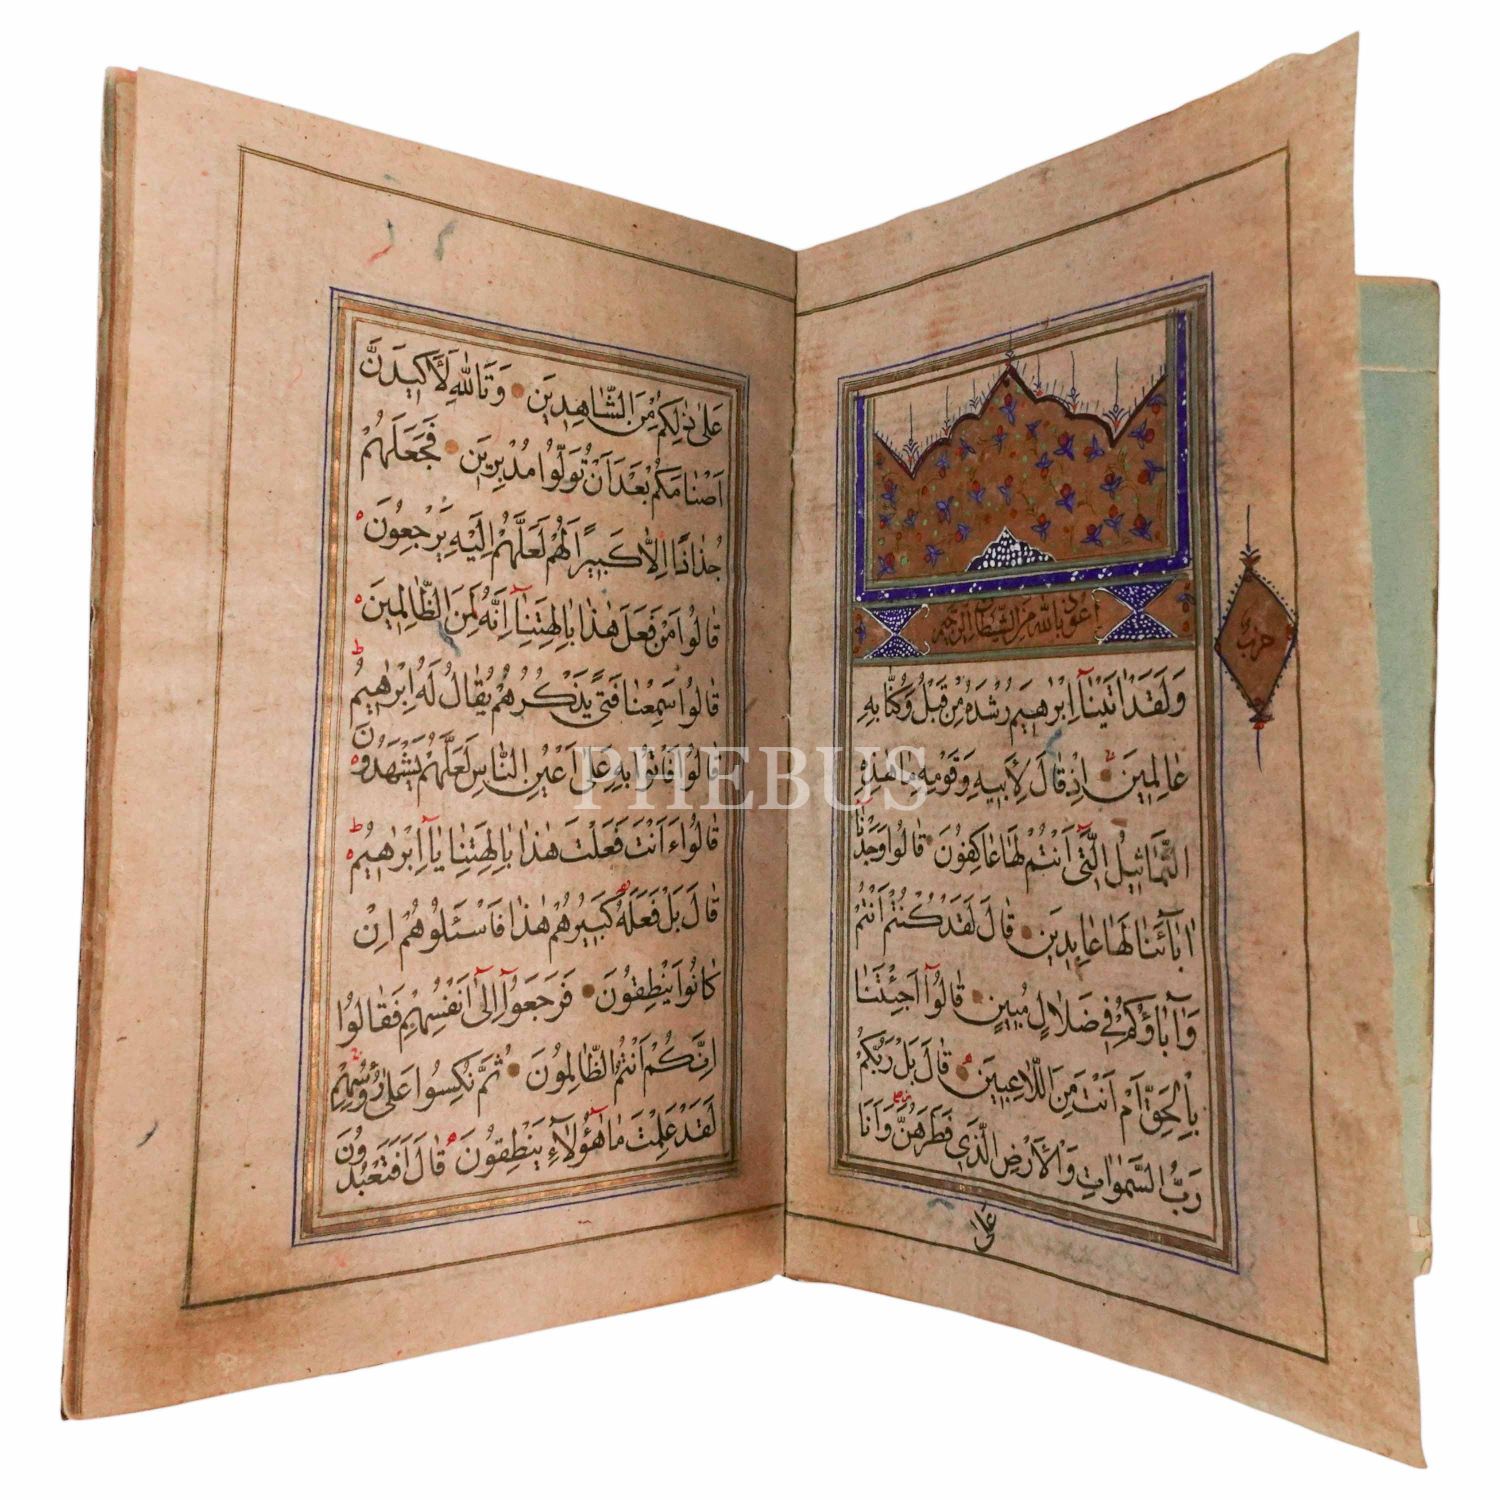 اعوذ بالله من الشيطان الرجيم
حزب
وَلَقَدْ اٰتَيْنٰا اِبْرٰهيمَ رُشْدَهُ مِنْ قَبْلُ وَكُنّٰا بِهِ
عٰالِمينَ اِذْ قٰالَ لِاَبيهِ وَقَوْمِهِ مٰا هٰذِهِ
التَّمٰاثيلُ الَّتي اَنْتُمْ لَهٰا عٰاكِفُونَ قٰالُوا وَجَدْنٰا
اٰبٰآئَنٰا لَهٰا عٰابِدينَ قٰالَ لَقَدْ كُنْتُمْ اَنْتُمْ
وَاٰبٰاؤُكُمْ في ضَلٰالٍ مُبينٍ قٰالُوا اَجِئْتَنٰا
بِالْحَقِّ اَمْ اَنْتَ مِنَ اللّٰاعِبينَ قٰالَ بَلْ رَبُّكُمْ
رَبُّ السَّمٰوٰاتِ وَالْاَرْضِ الَّذي فَطَرَهُنَّ وَاَنَا
عَلىٰ
عَلىٰ ذٰلِكُمْ مِنَ الشّٰاهِدينَ وَتَاللّٰهِ لَاَكيدَنَّ
اَصْنٰامَكُمْ بَعْدَ اَنْ تُوَلُّوا مُدْبِرينَ فَجَعَلَهُمْ
جُذٰاذًا اِلّٰا كَبيرًا لَهُمْ لَعَلَّهُمْ اِلَيْهِ يَرْجِعُونَ
قٰالُوا مَنْ فَعَلَ هٰذٰا بِاٰلِهَتِنٰا اِنَّهُ لَمِنَ الظّٰالِمينَ
قٰالُوا سَمِعْنٰا فَتًى يَذْكُرُهُمْ يُقٰالُ لَهُ اِبْرٰهيمُ
قٰالُوا فَأْتُوا بِهِ عَلىٰ اَعْيُنِ النّٰاسِ لَعَلَّهُمْ يَشْهَدُونَ
قٰالُوا ءَاَنْتَ فَعَلْتَ هٰذٰا بِاٰلِهَتِنٰا يٰا اِبْرٰهيمُ
قٰالَ بَلْ فَعَلَهُ كَبيرُهُمْ هٰذٰا فَاسْئَلُوهُمْ اِنْ
كٰانُوا يَنْطِقُونَ فَرَجَعُوا اِلىٰ اَنْفُسِهِمْ فَقٰالُوا
اِنَّكُمْ اَنْتُمُ الظّٰالِمُونَ ثُمَّ نُكِسُوا عَلىٰ رُؤُسِهِمْ
لَقَدْ عَلِمْتَ مٰا هٰؤُلٰآءِ يَنْطِقُونَ قٰالَ اَفَتَعْبُدُونَ
PHEBUS